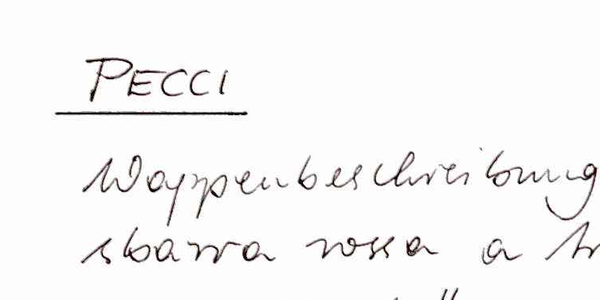 PECCI
Wappenbeschreibung
sbarra rossa a